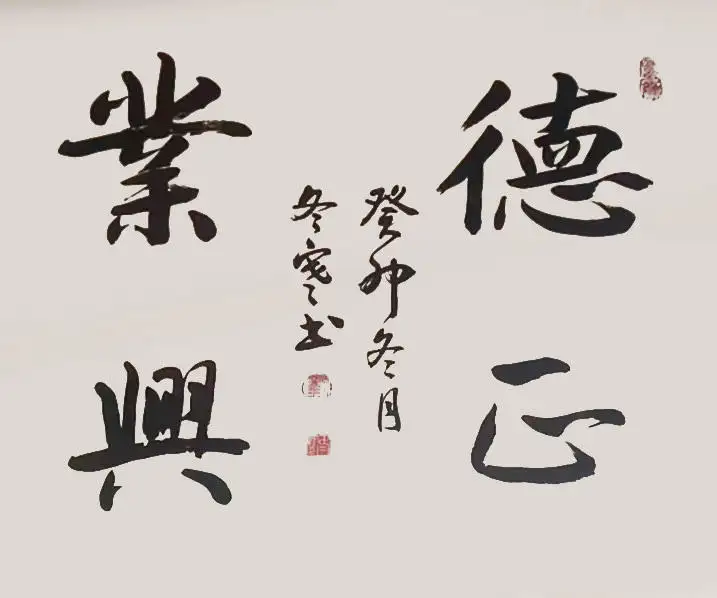 德正
業興
癸卯冬月
冬寒书